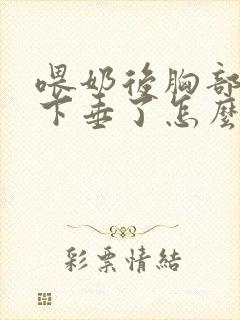 喂奶後胸部
下垂了怎麼
彩票情結